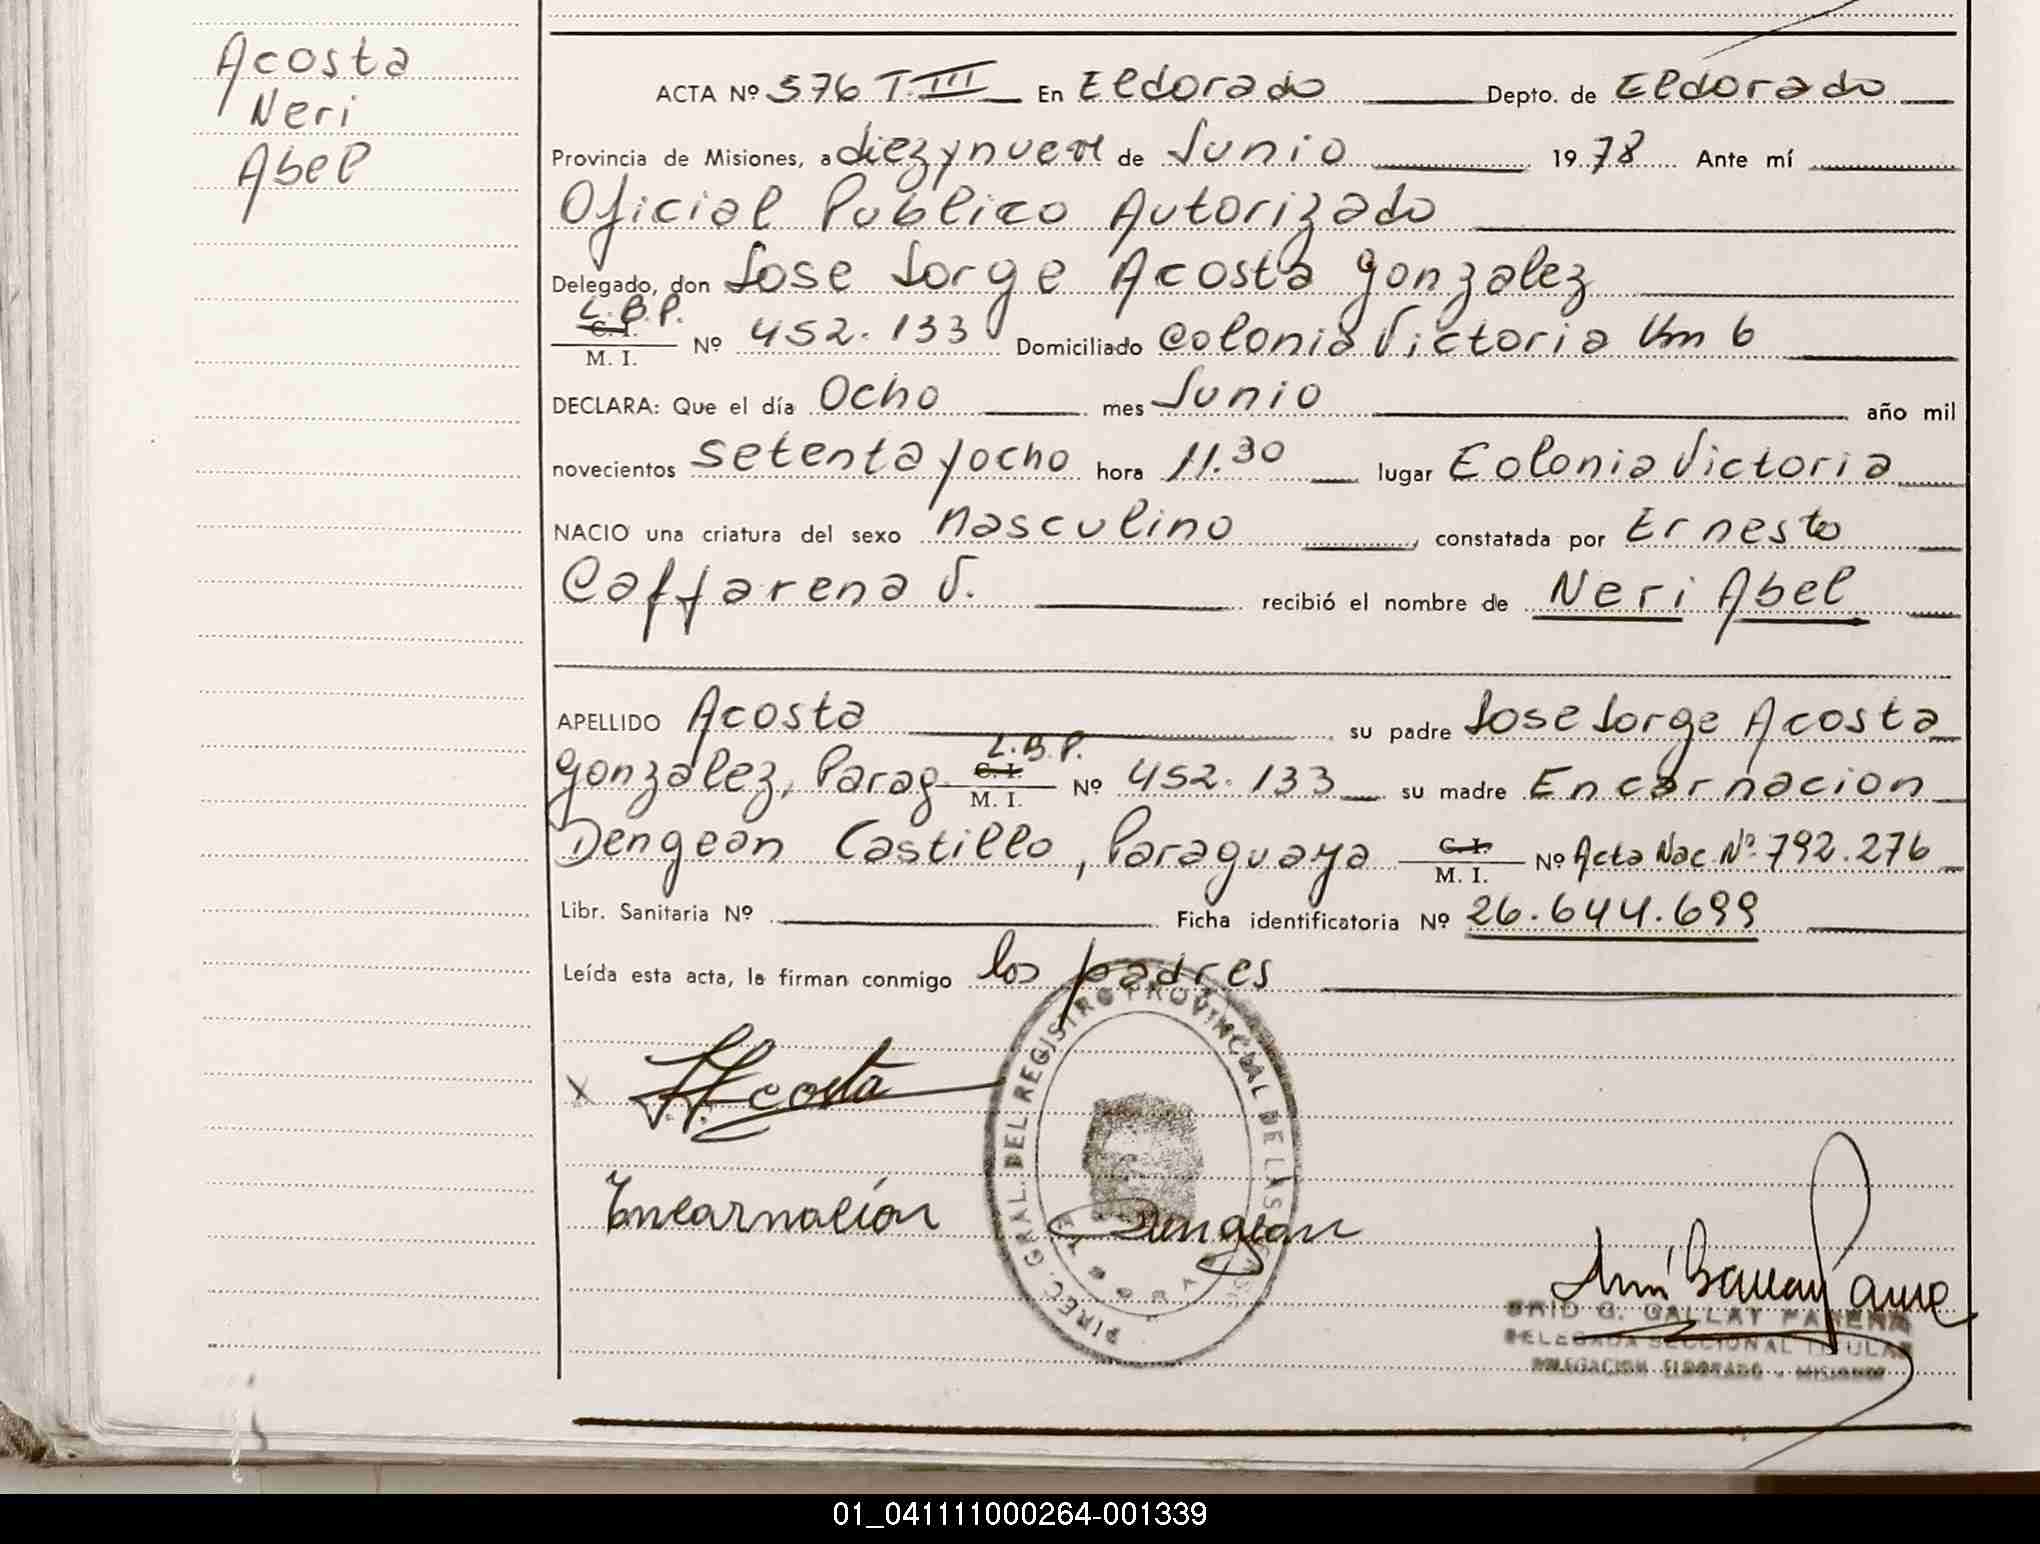 Acosta
Neri
Abel
ACTA Nº 576 T.III En Eldorado Depto. de Eldorado
Provincia de Misiones, a diez y nueve de Junio 1978 Ante mí
Oficial Publico Autorizado
Delegado, don Jose Jorge Acosta Gonzalez
L.B.P.
C. I.
M. I. Nº 452.133 Domiciliado Colonia Victoria Km 6
DECLARA: Que el día Ocho mes Junio año mil
novecientos setenta y ocho hora 11.30 lugar Colonia Victoria
NACIO una criatura del sexo masculino, constatada por Ernesto
Caffarena V. recibió el nombre de Neri Abel
APELLIDO Acosta su padre Jose Jorge Acosta
L.B.P.
Gonzalez, Parag C. I. M. I. Nº 452.133 su madre Encarnacion
Dengean Castillo, Paraguaya C. I. M. I. Nº Acta Nac. Nº 792.276
Libr. Sanitaria Nº Ficha identificatoria Nº 26.644.699
Leída esta acta, la firman conmigo los padres
DIREC. GRAL. DEL REGISTRO PROVINCIAL DE LAS
x J.J. Acosta
Encarnación Dengean
BRID G. GALLAY PANERA
DELEGADA SECCIONAL TITULAR
DELEGACION ELDORADO - MISIONES
01_041111000264-001339